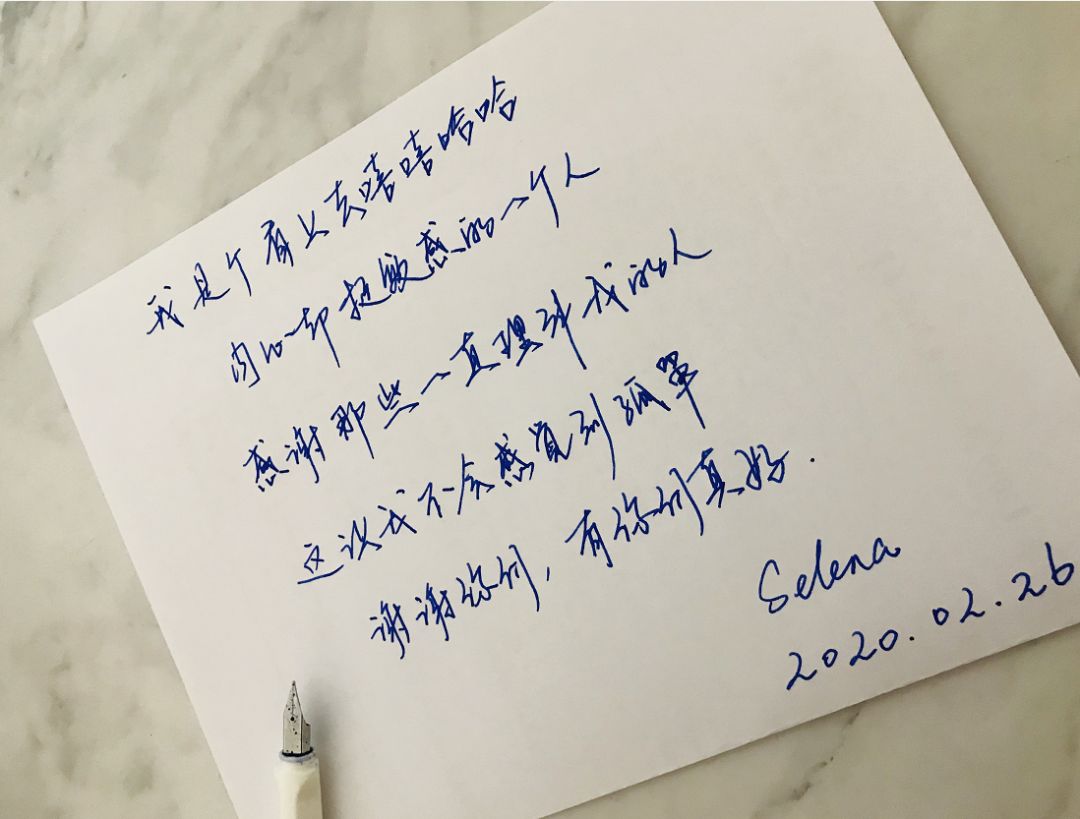 我是个看上去嘻嘻哈哈
内心却挺敏感的一个人
感谢那些一直理解我的人
这让我不会感觉到孤单
谢谢你们，有你们真好.
Selena
2020.02.26